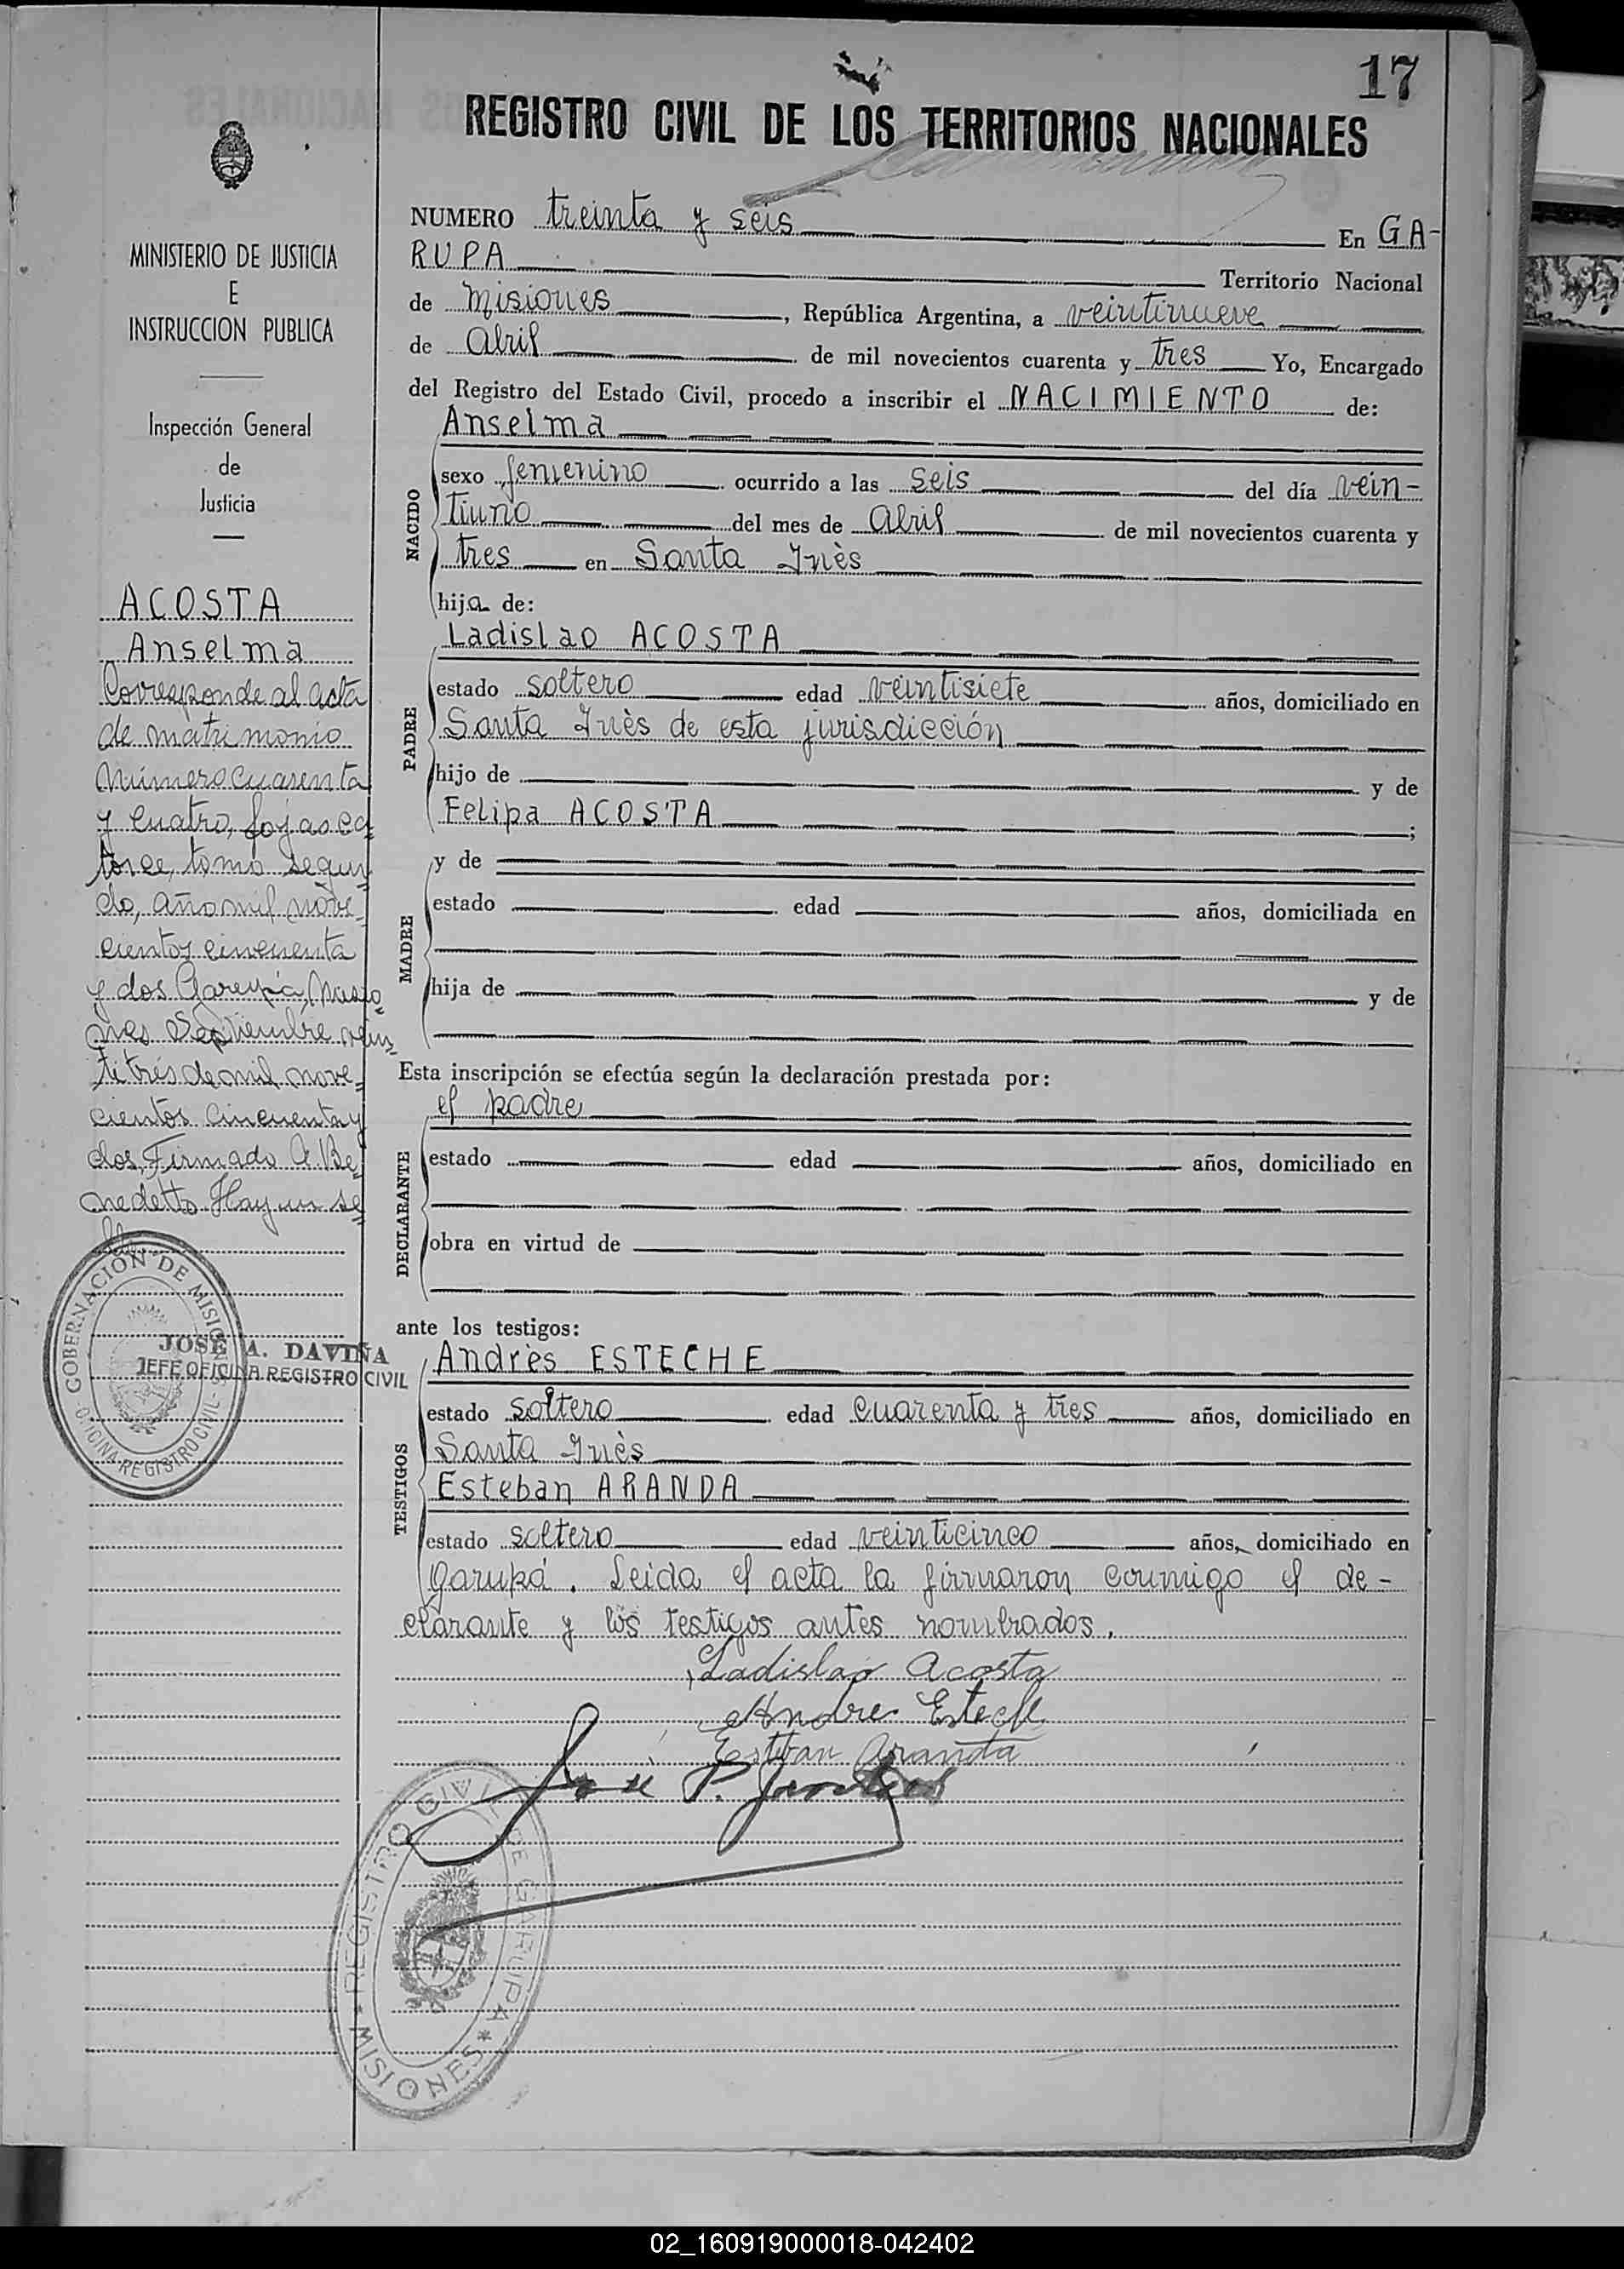 17
REGISTRO CIVIL DE LOS TERRITORIOS NACIONALES
MINISTERIO DE JUSTICIA
E
INSTRUCCION PUBLICA
Inspección General
de
Justicia
ACOSTA
Anselma
Corresponde al acta
de matrimonio
número cuarenta
y cuatro, fojas ca
torce, tomo segun
do, año mil nove
cientos cincuenta
y dos Garupá, Misio
nes Septiembre vein
titrés de mil nove
cientos cincuenta y
dos, Firmado A. Be
nedetto Hay un se
llo
GOBERNACIÓN DE MISIONES
OFICINA REGISTRO CIVIL
JOSÉ A. DAVIÑA
JEFE OFICINA REGISTRO CIVIL
NUMERO treinta y seis En GA-
RUPA Territorio Nacional
de Misiones, República Argentina, a veintinueve
de Abril de mil novecientos cuarenta y tres Yo, Encargado
del Registro del Estado Civil, procedo a inscribir el NACIMIENTO de:
NACIDO
Anselma
sexo femenino ocurrido a las seis del día vein-
tiuno del mes de Abril de mil novecientos cuarenta y
tres en Santa Inès
hija de:
PADRE
Ladislao ACOSTA
estado soltero edad veintisiete años, domiciliado en
Santa Inès de esta jurisdicción
hijo de y de
Felipa ACOSTA ;
MADRE
y de
estado edad años, domiciliada en
hija de y de
Esta inscripción se efectúa según la declaración prestada por:
DECLARANTE
el padre
estado edad años, domiciliado en
obra en virtud de
ante los testigos:
TESTIGOS
Andrès ESTECHE
estado soltero edad cuarenta y tres años, domiciliado en
Santa Inès
Esteban ARANDA
estado soltero edad veinticinco años, domiciliado en
Garupá. Leida el acta la firmaron conmigo el de-
clarante y los testigos antes nombrados.
Ladislao Acosta
Andre Estech
Esteban Aranda
José P.
REGISTRO CIVIL DE GARUPA
* MISIONES *
02_160919000018-042402